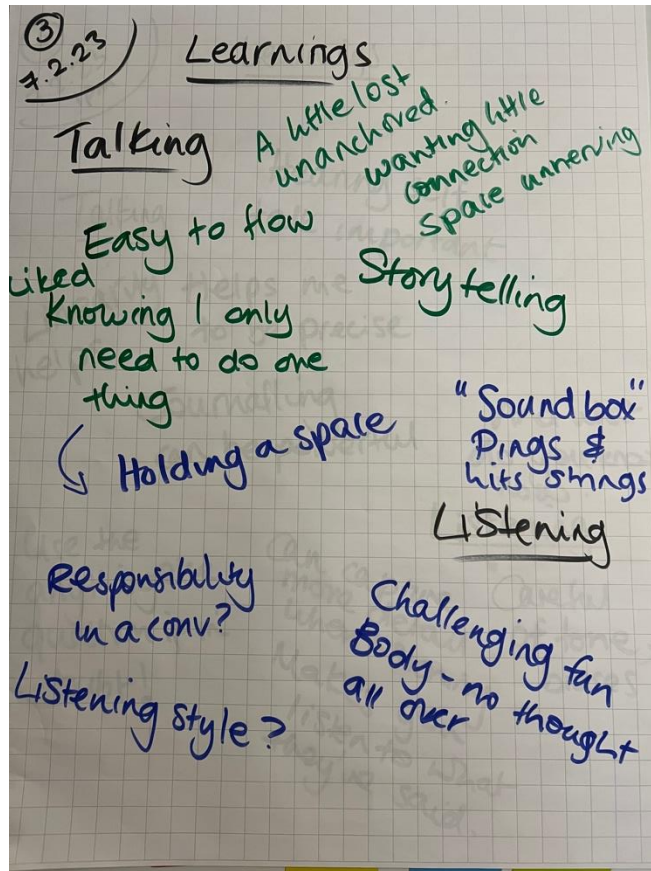 ③
7.2.23
Learnings
Talking
A little lost
unanchored.
wanting little
connection
space unnerving
Easy to flow
Liked
Knowing I only
need to do one
thing
Story telling
Holding a space
"Sound box"
Pings &
hits strings
Listening
Responsibility
in a conv?
Listening style?
Challenging fun
Body - no thought
all over